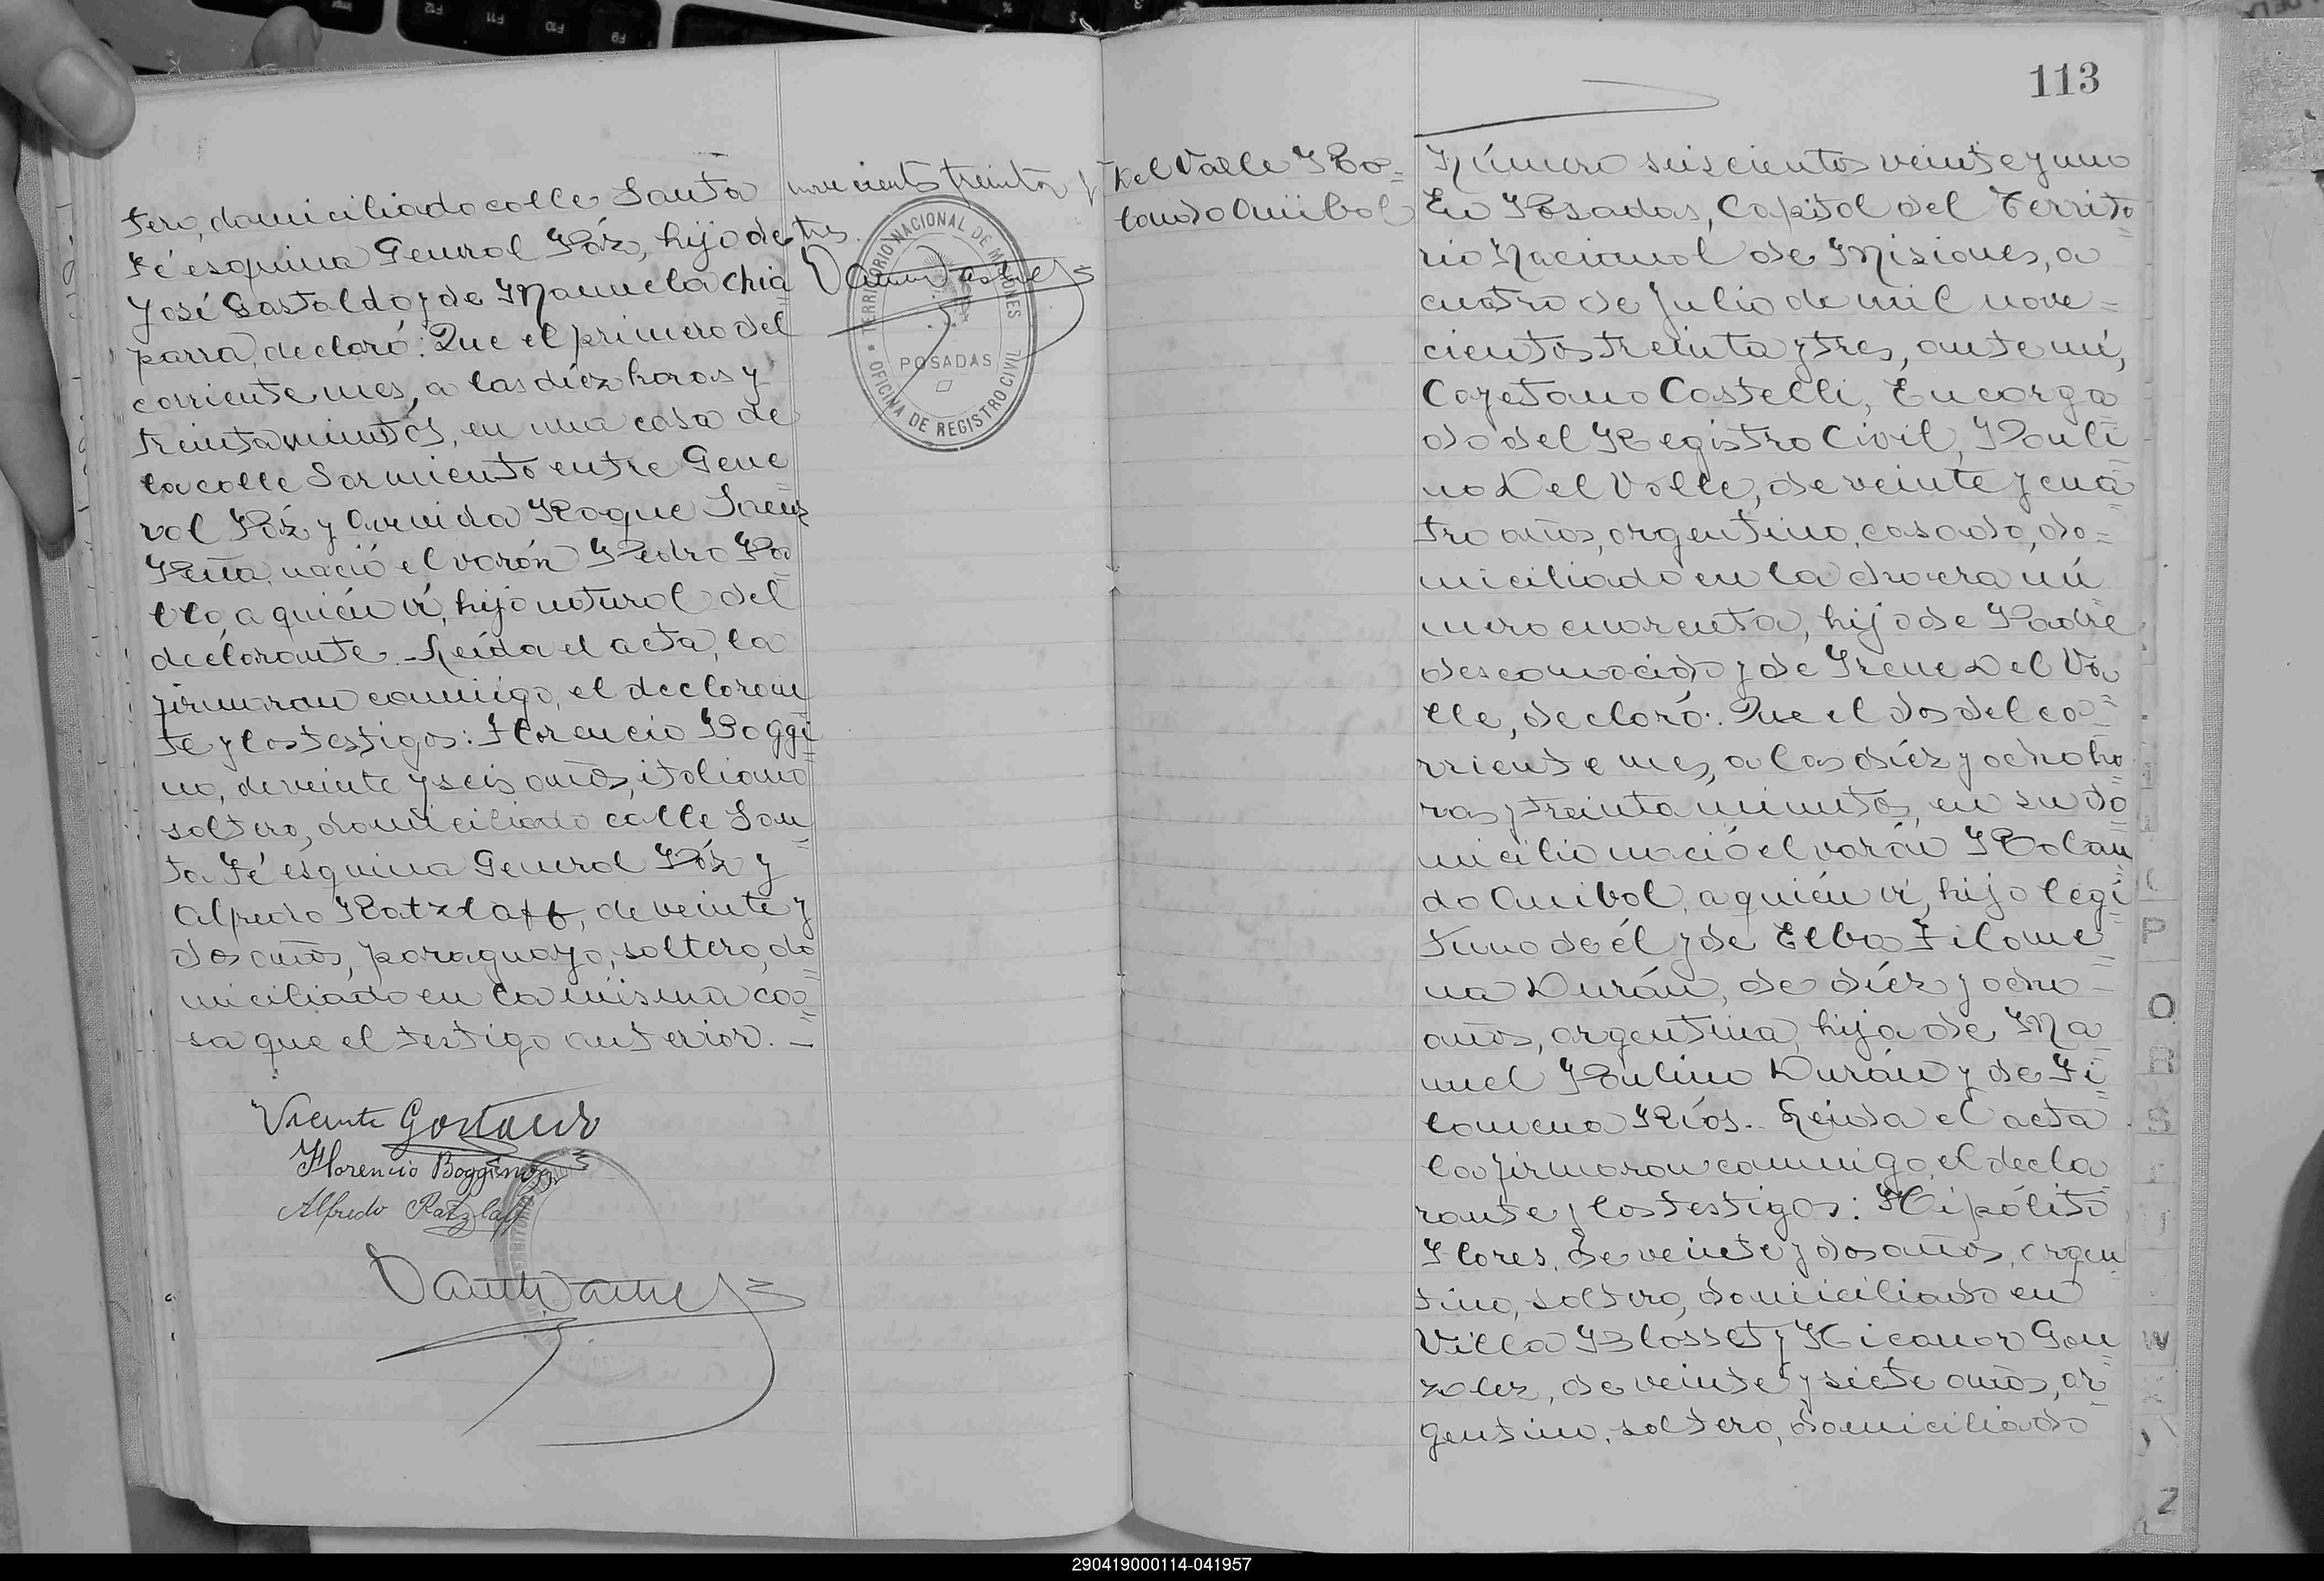 tero, domiciliado calle Santa
Fé esquina General Páz, hijo de
José Gastaldo y de Manuela Chia
parra, declaró: Que el primero del
corriente mes, a las diéz horas y
treinta minutos, en una casa de
la calle Sarmiento entre Gene
ral Páz y Avenida Roque Saenz
Peña, nació el varón Pedro Pa
blo, a quién ví, hijo natural del
declarante. Leída el acta, la
firmaron conmigo, el declaran
te y los testigos: Florencio Boggi
no, de veinte y seis años, italiano
soltero, domiciliado calle San
ta Fé esquina General Páz y
Alfredo Ratzlaff, de veinte y
dos años, paraguayo, soltero, do
miciliado en la misma ca
sa que el testigo anterior.
Vicente Gastaldo
Florencio Boggino
Alfredo Ratzlaff
novecientos treinta y
tres
TERRITORIO NACIONAL DE MISIONES
POSADAS
OFICINA DE REGISTRO CIVIL
113
Del Valle Ro-
lando Anibal
Número seiscientos veinte y uno
En Posadas, Capital del Territo
rio Nacional de Misiones, a
cuatro de Julio de mil nove
cientos treinta y tres, ante mí,
Cayetano Castelli, Encarga
do del Registro Civil, Pauli
no Del Valle, de veinte y cua
tro años, argentino, casado, do
miciliado en la chacra nú
mero cuarenta, hijo de Padre
desconocido y de Irene Del Va
lle, declaró: Que el dos del co
rriente mes, a las diéz y ocho ho
ras y treinta minutos, en su do
micilio nació el varón Rolan
do Anibal, a quién ví, hijo legí
timo de él y de Elba Filome
na Durán, de diéz y ocho
años, argentina, hija de Ma
nuel Paulino Durán y de Fi
lomena Ríos. Leida el acta
la firmaron conmigo, el decla
rante y los testigos: Hipólito
Flores, de veinte y dos años, argen
tino, soltero, domiciliado en
Villa Blosset y Nicanor Gon
zalez, de veinte y siete años, ar
gentino, soltero, domiciliado
P
O
R
S
W
Z
290419000114-041957